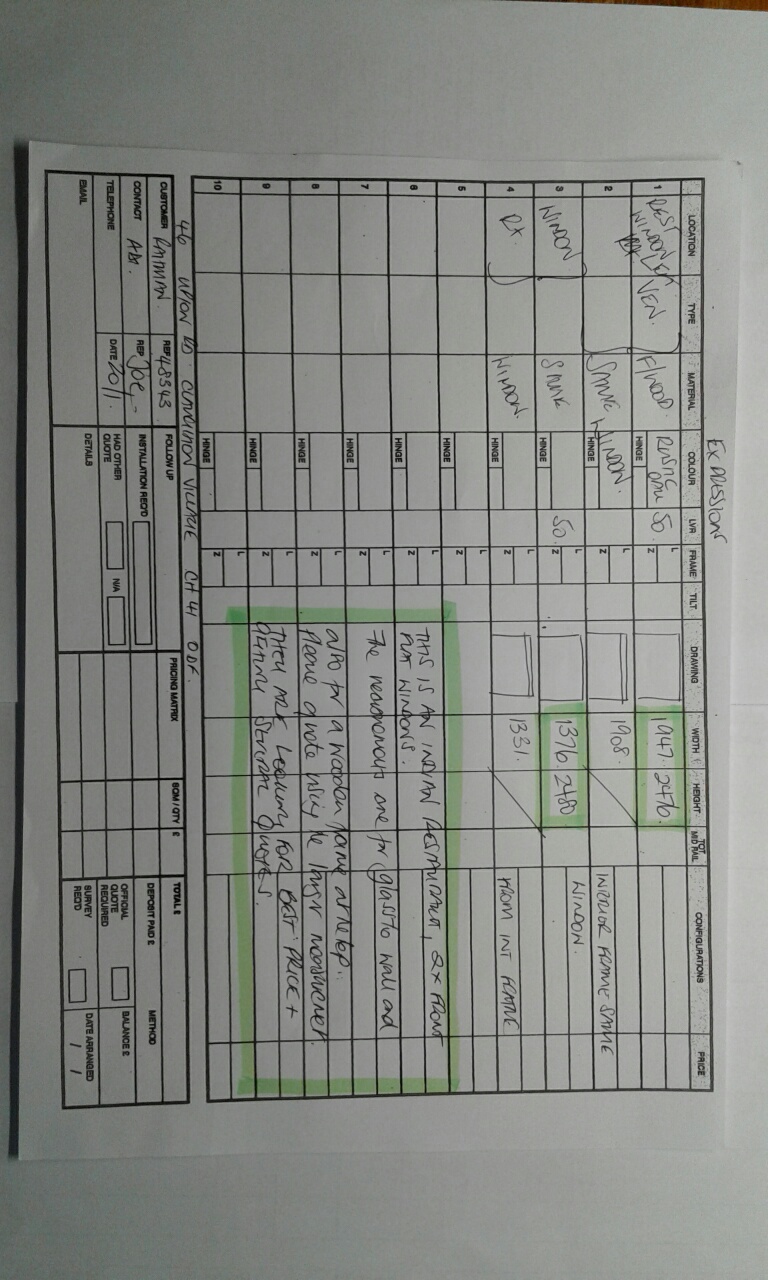 EXPRESSIONS
LOCATION TYPE MATERIAL COLOUR LVR FRAME TILT DRAWING WIDTH HEIGHT TOT MID RAIL CONFIGURATIONS PRICE
1 REST WINDOW VEN. F/WOOD RUSTIC 50. L 1947. 2476.
HINGE Z
2 SAME WINDOW. L 1908. INTERIOR FRAME SAME
HINGE Z WINDOW.
3 WINDOW SAME 50. L 1376. 2480
HINGE Z
4 WINDOW L 1331. FROM INT FRAME
HINGE Z
5 L
Z
6 L THIS IS AN INDIAN RESTAURANT, 2X FRONT
HINGE Z FLAT WINDOWS.
7 L The measurements are for glass to wall and
HINGE Z also for a wooden frame at the top.
8 L Please quote using the larger measurement.
HINGE Z THEY ARE LOOKING FOR BEST PRICE +
9 L QUOTES.
HINGE Z
10 L
HINGE Z
46 UPTON RD VILLAGE CH41 0DF.
CUSTOMER RAHMAN. REF 48343 FOLLOW UP PRICING MATRIX BOM / QTY £ TOTAL £ METHOD
CONTACT REP JOE INSTALLATION REQ'D DEPOSIT PAID £
TELEPHONE DATE 20/11. HAD OTHER QUOTE N/A OFFICIAL QUOTE REQUIRED BALANCE £
EMAIL DETAILS SURVEY REQ'D DATE ARRANGED / /